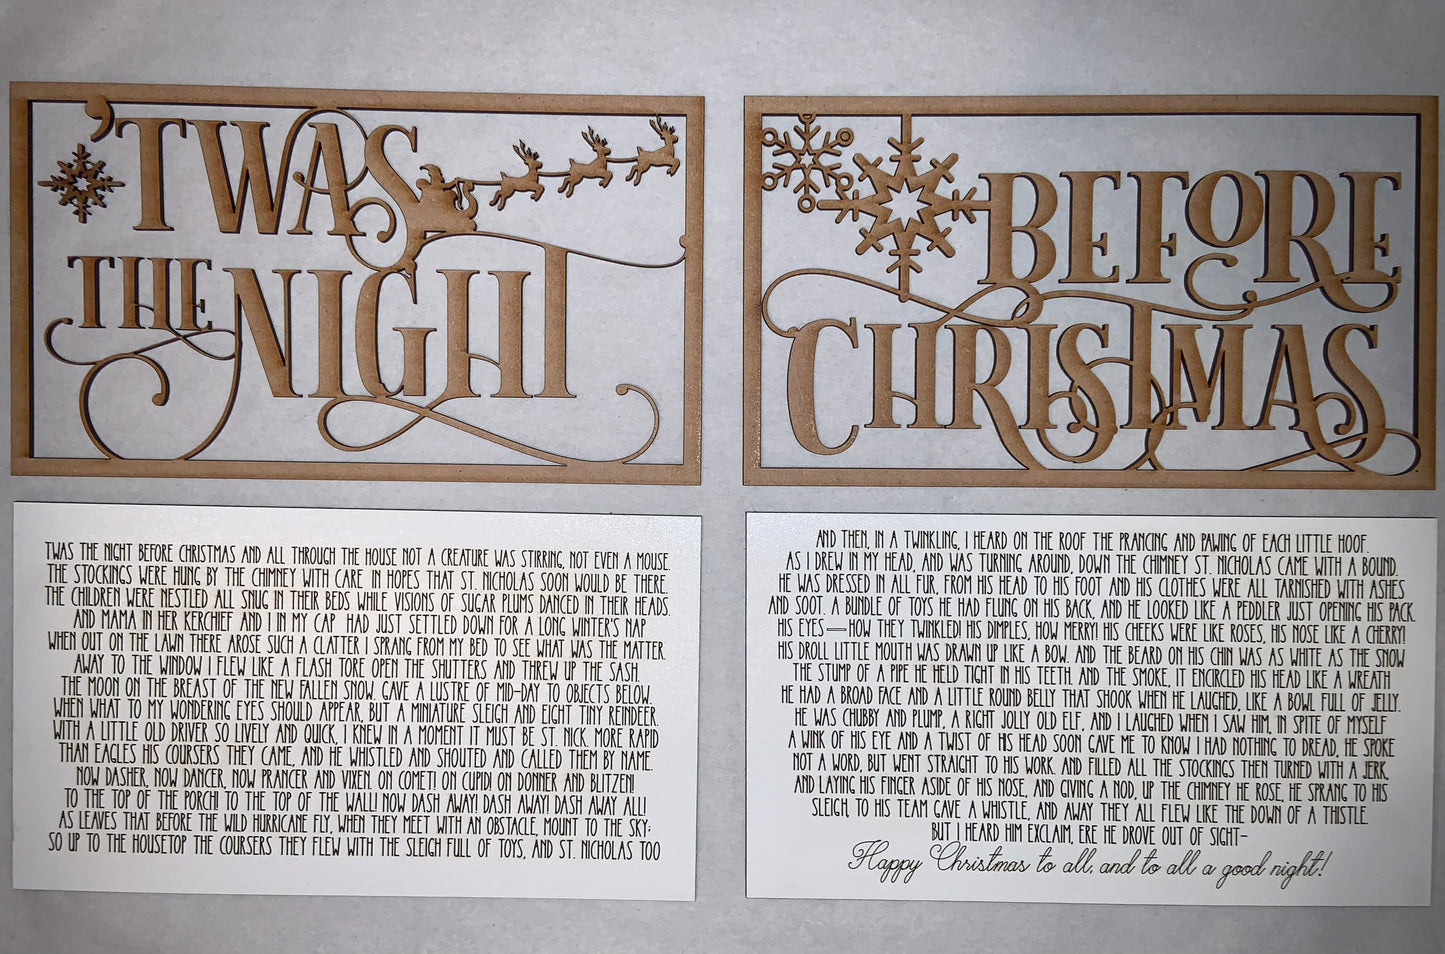 'TWAS
THE NIGHT
BEFORE
CHRISTMAS
TWAS THE NIGHT BEFORE CHRISTMAS AND ALL THROUGH THE HOUSE NOT A CREATURE WAS STIRRING, NOT EVEN A MOUSE.
THE STOCKINGS WERE HUNG BY THE CHIMNEY WITH CARE IN HOPES THAT ST. NICHOLAS SOON WOULD BE THERE.
THE CHILDREN WERE NESTLED ALL SNUG IN THEIR BEDS WHILE VISIONS OF SUGAR PLUMS DANCED IN THEIR HEADS.
AND MAMA IN HER KERCHIEF AND I IN MY CAP HAD JUST SETTLED DOWN FOR A LONG WINTER'S NAP
WHEN OUT ON THE LAWN THERE AROSE SUCH A CLATTER I SPRANG FROM MY BED TO SEE WHAT WAS THE MATTER.
AWAY TO THE WINDOW I FLEW LIKE A FLASH TORE OPEN THE SHUTTERS AND THREW UP THE SASH.
THE MOON ON THE BREAST OF THE NEW FALLEN SNOW. GAVE A LUSTRE OF MID-DAY TO OBJECTS BELOW.
WHEN WHAT TO MY WONDERING EYES SHOULD APPEAR, BUT A MINIATURE SLEIGH AND EIGHT TINY REINDEER.
WITH A LITTLE OLD DRIVER SO LIVELY AND QUICK, I KNEW IN A MOMENT IT MUST BE ST. NICK. MORE RAPID
THAN EAGLES HIS COURSERS THEY CAME, AND HE WHISTLED AND SHOUTED AND CALLED THEM BY NAME.
NOW DASHER, NOW DANCER, NOW PRANCER AND VIXEN. ON COMET! ON CUPID! ON DONNER AND BLITZEN!
TO THE TOP OF THE PORCH! TO THE TOP OF THE WALL! NOW DASH AWAY! DASH AWAY! DASH AWAY ALL!
AS LEAVES THAT BEFORE THE WILD HURRICANE FLY, WHEN THEY MEET WITH AN OBSTACLE, MOUNT TO THE SKY;
SO UP TO THE HOUSETOP THE COURSERS THEY FLEW WITH THE SLEIGH FULL OF TOYS, AND ST. NICHOLAS TOO
AND THEN, IN A TWINKLING, I HEARD ON THE ROOF THE PRANCING AND PAWING OF EACH LITTLE HOOF.
AS I DREW IN MY HEAD, AND WAS TURNING AROUND, DOWN THE CHIMNEY ST. NICHOLAS CAME WITH A BOUND.
HE WAS DRESSED IN ALL FUR, FROM HIS HEAD TO HIS FOOT AND HIS CLOTHES WERE ALL TARNISHED WITH ASHES
AND SOOT. A BUNDLE OF TOYS HE HAD FLUNG ON HIS BACK, AND HE LOOKED LIKE A PEDDLER JUST OPENING HIS PACK.
HIS EYES—HOW THEY TWINKLED! HIS DIMPLES, HOW MERRY! HIS CHEEKS WERE LIKE ROSES, HIS NOSE LIKE A CHERRY!
HIS DROLL LITTLE MOUTH WAS DRAWN UP LIKE A BOW. AND THE BEARD ON HIS CHIN WAS AS WHITE AS THE SNOW
THE STUMP OF A PIPE HE HELD TIGHT IN HIS TEETH. AND THE SMOKE, IT ENCIRCLED HIS HEAD LIKE A WREATH
HE HAD A BROAD FACE AND A LITTLE ROUND BELLY THAT SHOOK WHEN HE LAUGHED, LIKE A BOWL FULL OF JELLY.
HE WAS CHUBBY AND PLUMP, A RIGHT JOLLY OLD ELF, AND I LAUGHED WHEN I SAW HIM, IN SPITE OF MYSELF
A WINK OF HIS EYE AND A TWIST OF HIS HEAD SOON GAVE ME TO KNOW I HAD NOTHING TO DREAD, HE SPOKE
NOT A WORD, BUT WENT STRAIGHT TO HIS WORK. AND FILLED ALL THE STOCKINGS THEN TURNED WITH A JERK,
AND LAYING HIS FINGER ASIDE OF HIS NOSE, AND GIVING A NOD, UP THE CHIMNEY HE ROSE, HE SPRANG TO HIS
SLEIGH, TO HIS TEAM GAVE A WHISTLE, AND AWAY THEY ALL FLEW LIKE THE DOWN OF A THISTLE.
BUT I HEARD HIM EXCLAIM, ERE HE DROVE OUT OF SIGHT-
Happy Christmas to all, and to all a good night!